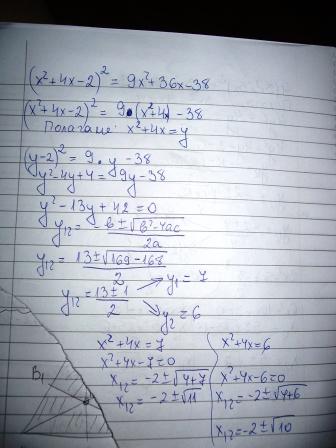 (x²+4x-2)² = 9x²+36x-38
(x²+4x-2)² = 9·(x²+4x)-38
Полагаме: x²+4x=y
(y-2)² = 9.y-38
y²-4y+4=9y-38
y²-13y+42=0
y₁₂=-b±√b²-4ac/2a
y₁₂=13±√169-168/2
y₁=7
y₁₂=13±1/2
y₂=6
x²+4x=7
x²+4x-7=0
x₁₂=-2±√4+7
x₁₂=-2±√11
x²+4x=6
x²+4x-6=0
x₁₂=-2±√4+6
x₁₂=-2±√10
B₁